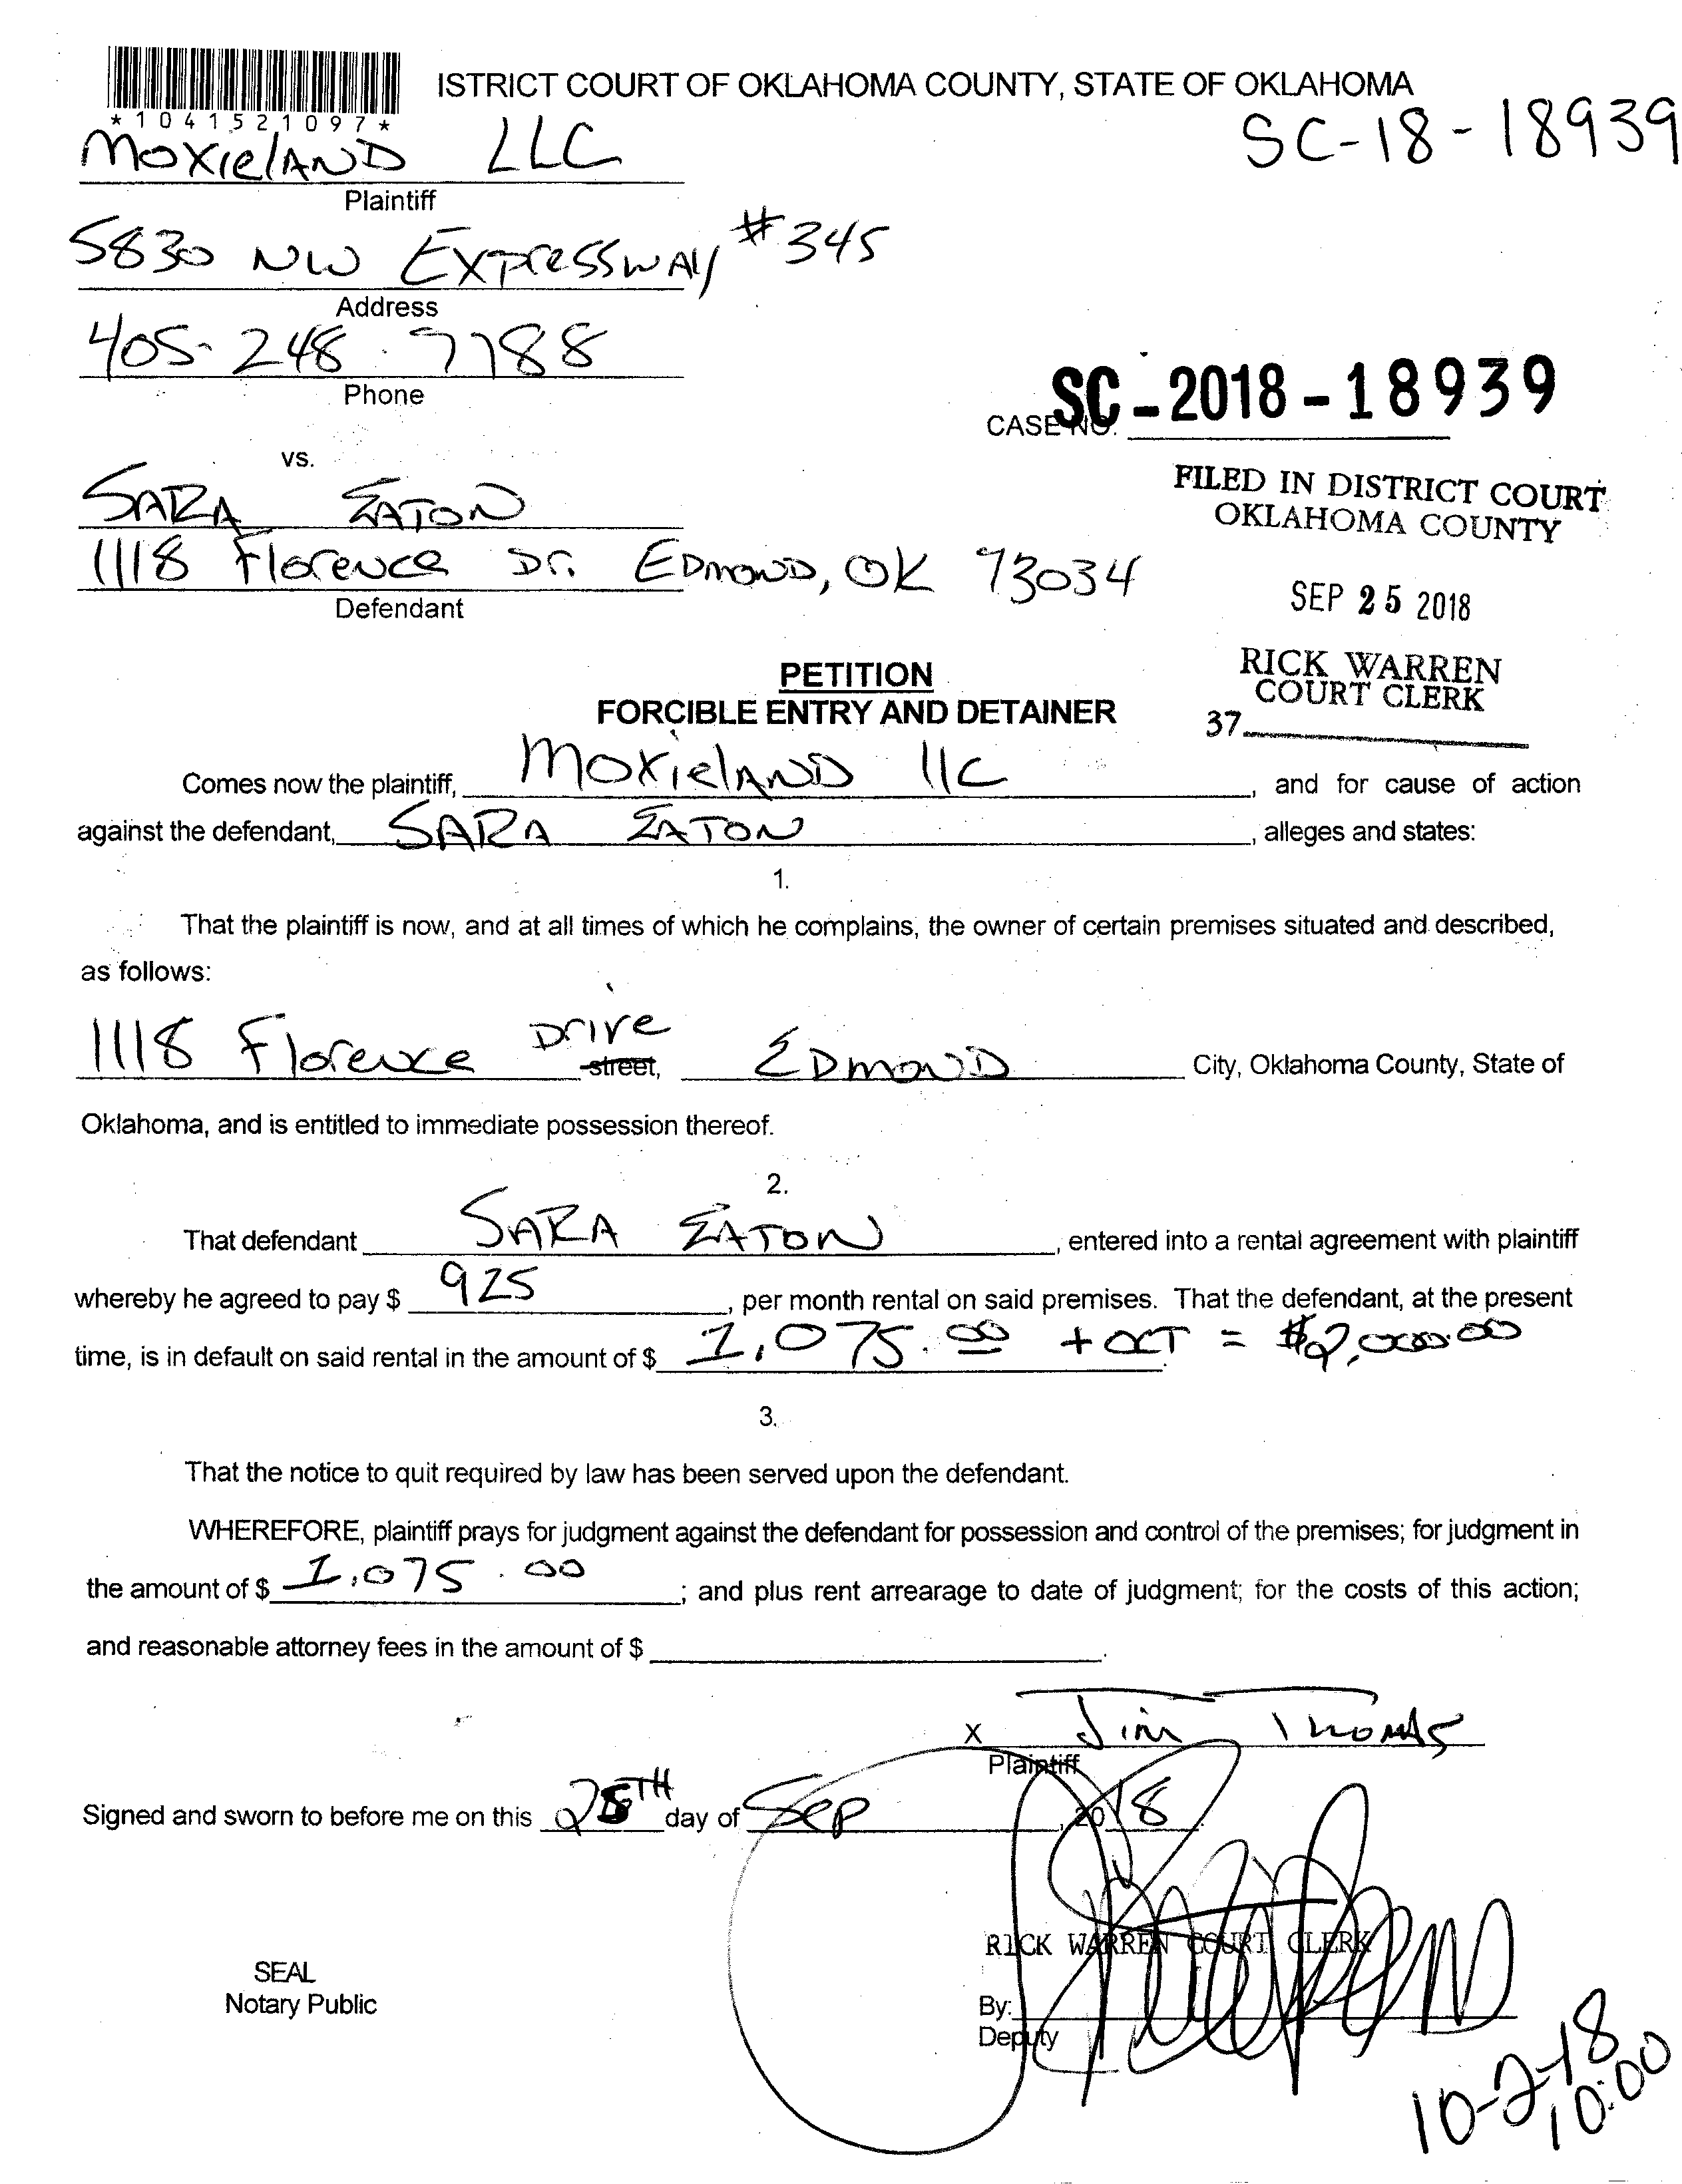 ISTRICT COURT OF OKLAHOMA COUNTY, STATE OF OKLAHOMA
*1041521097*
SC-18-18939
MoxielAND LLC
Plaintiff
5830 NW EXPRESSWAY #345
Address
405-248-7788
Phone
CASE NO. SC-2018-18939
vs.
SARA EATON
1118 Florence Dr. EDMOND, OK 73034
Defendant
FILED IN DISTRICT COURT
OKLAHOMA COUNTY
SEP 25 2018
RICK WARREN
COURT CLERK
37
PETITION
FORCIBLE ENTRY AND DETAINER
Comes now the plaintiff, MoxielAND llC, and for cause of action
against the defendant, SARA EATON, alleges and states:
1.
That the plaintiff is now, and at all times of which he complains, the owner of certain premises situated and described,
as follows:
1118 Florence Drive street, EDMOND City, Oklahoma County, State of
Oklahoma, and is entitled to immediate possession thereof.
2.
That defendant SARA EATON, entered into a rental agreement with plaintiff
whereby he agreed to pay $ 925, per month rental on said premises. That the defendant, at the present
time, is in default on said rental in the amount of $ 1,075.00 + OCT = $2,000.00.
3.
That the notice to quit required by law has been served upon the defendant.
WHEREFORE, plaintiff prays for judgment against the defendant for possession and control of the premises; for judgment in
the amount of $ 1,075.00; and plus rent arrearage to date of judgment; for the costs of this action;
and reasonable attorney fees in the amount of $ .
X Jim Thomas
Plaintiff
Signed and sworn to before me on this 25TH day of Sep, 2018.
RICK WARREN COURT CLERK
SEAL
Notary Public
By:
Deputy
10-2-18
10:00